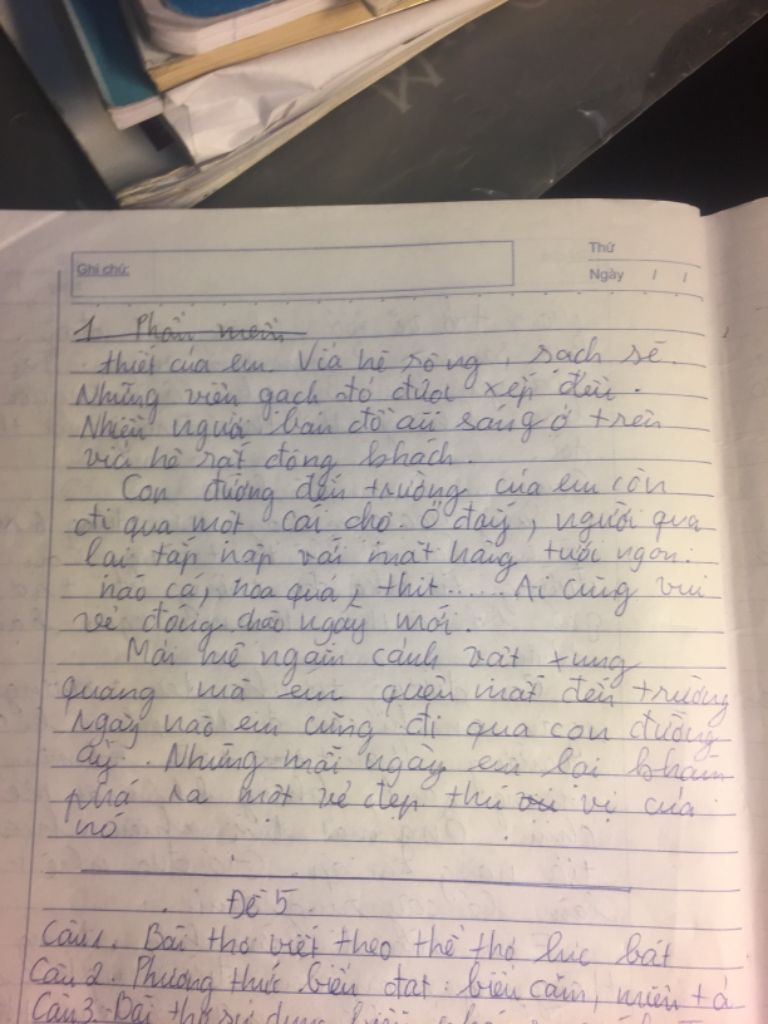 Ghi chú:
Thứ
Ngày / /
1 Phần mềm
thiết của em. Vỉa hè rộng, sạch sẽ.
Những viên gạch đỏ được xếp đều.
Nhiều người bán đồ ăn sáng ở trên
vỉa hè rất đông khách.
Con đường đến trường của em còn
đi qua một cái chợ. Ở đây, người qua
lại tấp nập với mặt hàng tươi ngon:
nào cá, hoa quả, thịt...... Ai cũng vui
vẻ đóng chào ngày mới.
Mải mê ngắm cảnh vật xung
quang mà em quên mất đến trường
Ngày nào em cũng đi qua con đường
ấy. Nhưng mỗi ngày em lại khám
phá ra một vẻ đẹp thú vị của
nó
Đề 5.
Câu 1. Bài thơ viết theo thể thơ lục bát
Câu 2. Phương thức biểu đạt: biểu cảm, miêu tả
Câu 3. Bài thơ sử dụng